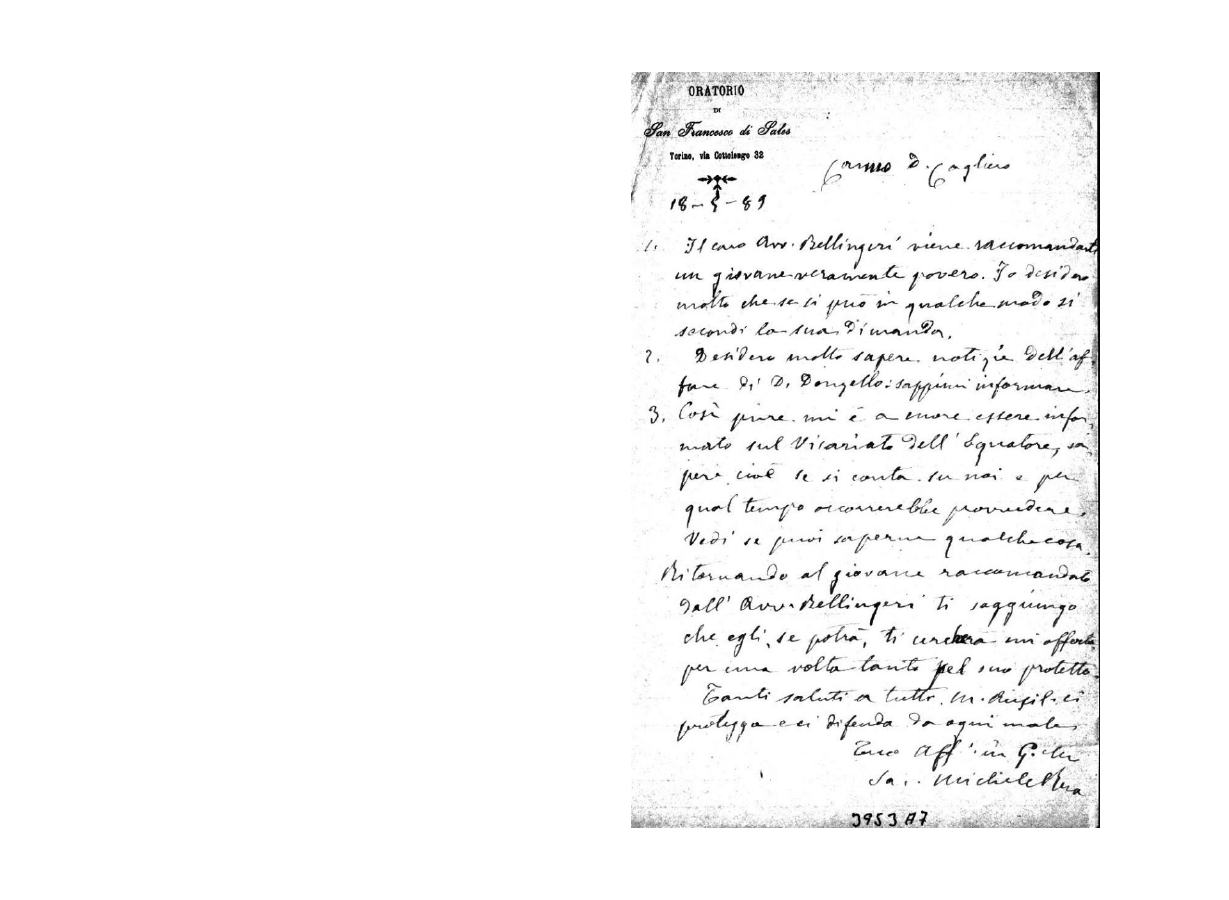 ORATORIO
DI
San Francesco di Sales
Torino, via Cottolengo 32
Carmo D. Cagliero
18-5-89
1. Il caro Avv. Bellingeri viene raccomandarti
un giovane veramente povero. Io desidero
molto che se si può in qualche modo si
secondi la sua dimanda.
2. Desidero molto sapere notizie dell'af-
fare di D. : sappimi informare.
3. Così pure mi è a cuore essere infor-
mato sul Vicariato dell'Equatore, sa-
pere cioè se si conta su noi e per
qual tempo occorrerebbe provvedere.
Vedi se puoi saperne qualche cosa.
Ritornando al giovane raccomandato
dall'Avv. Bellingeri ti soggiungo
che egli, se potrà, ti cercherà un'offerta
per una volta tanto pel suo protetto.
Tanti saluti a tutti. M. Ausil. ci
protegga e ci difenda da ogni male.
Tuo Aff. in G. e M.
Sac. Michele Rua
3953 A7